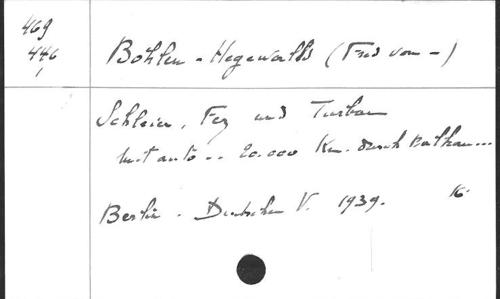 469
446
1
Bohlen - Hegewalds (Fred von -)
Schleier, Fez und Turban
Mit auto .. 20.000 Km. durch Balkan...
Berlin - Deutscher V. 1939. 16